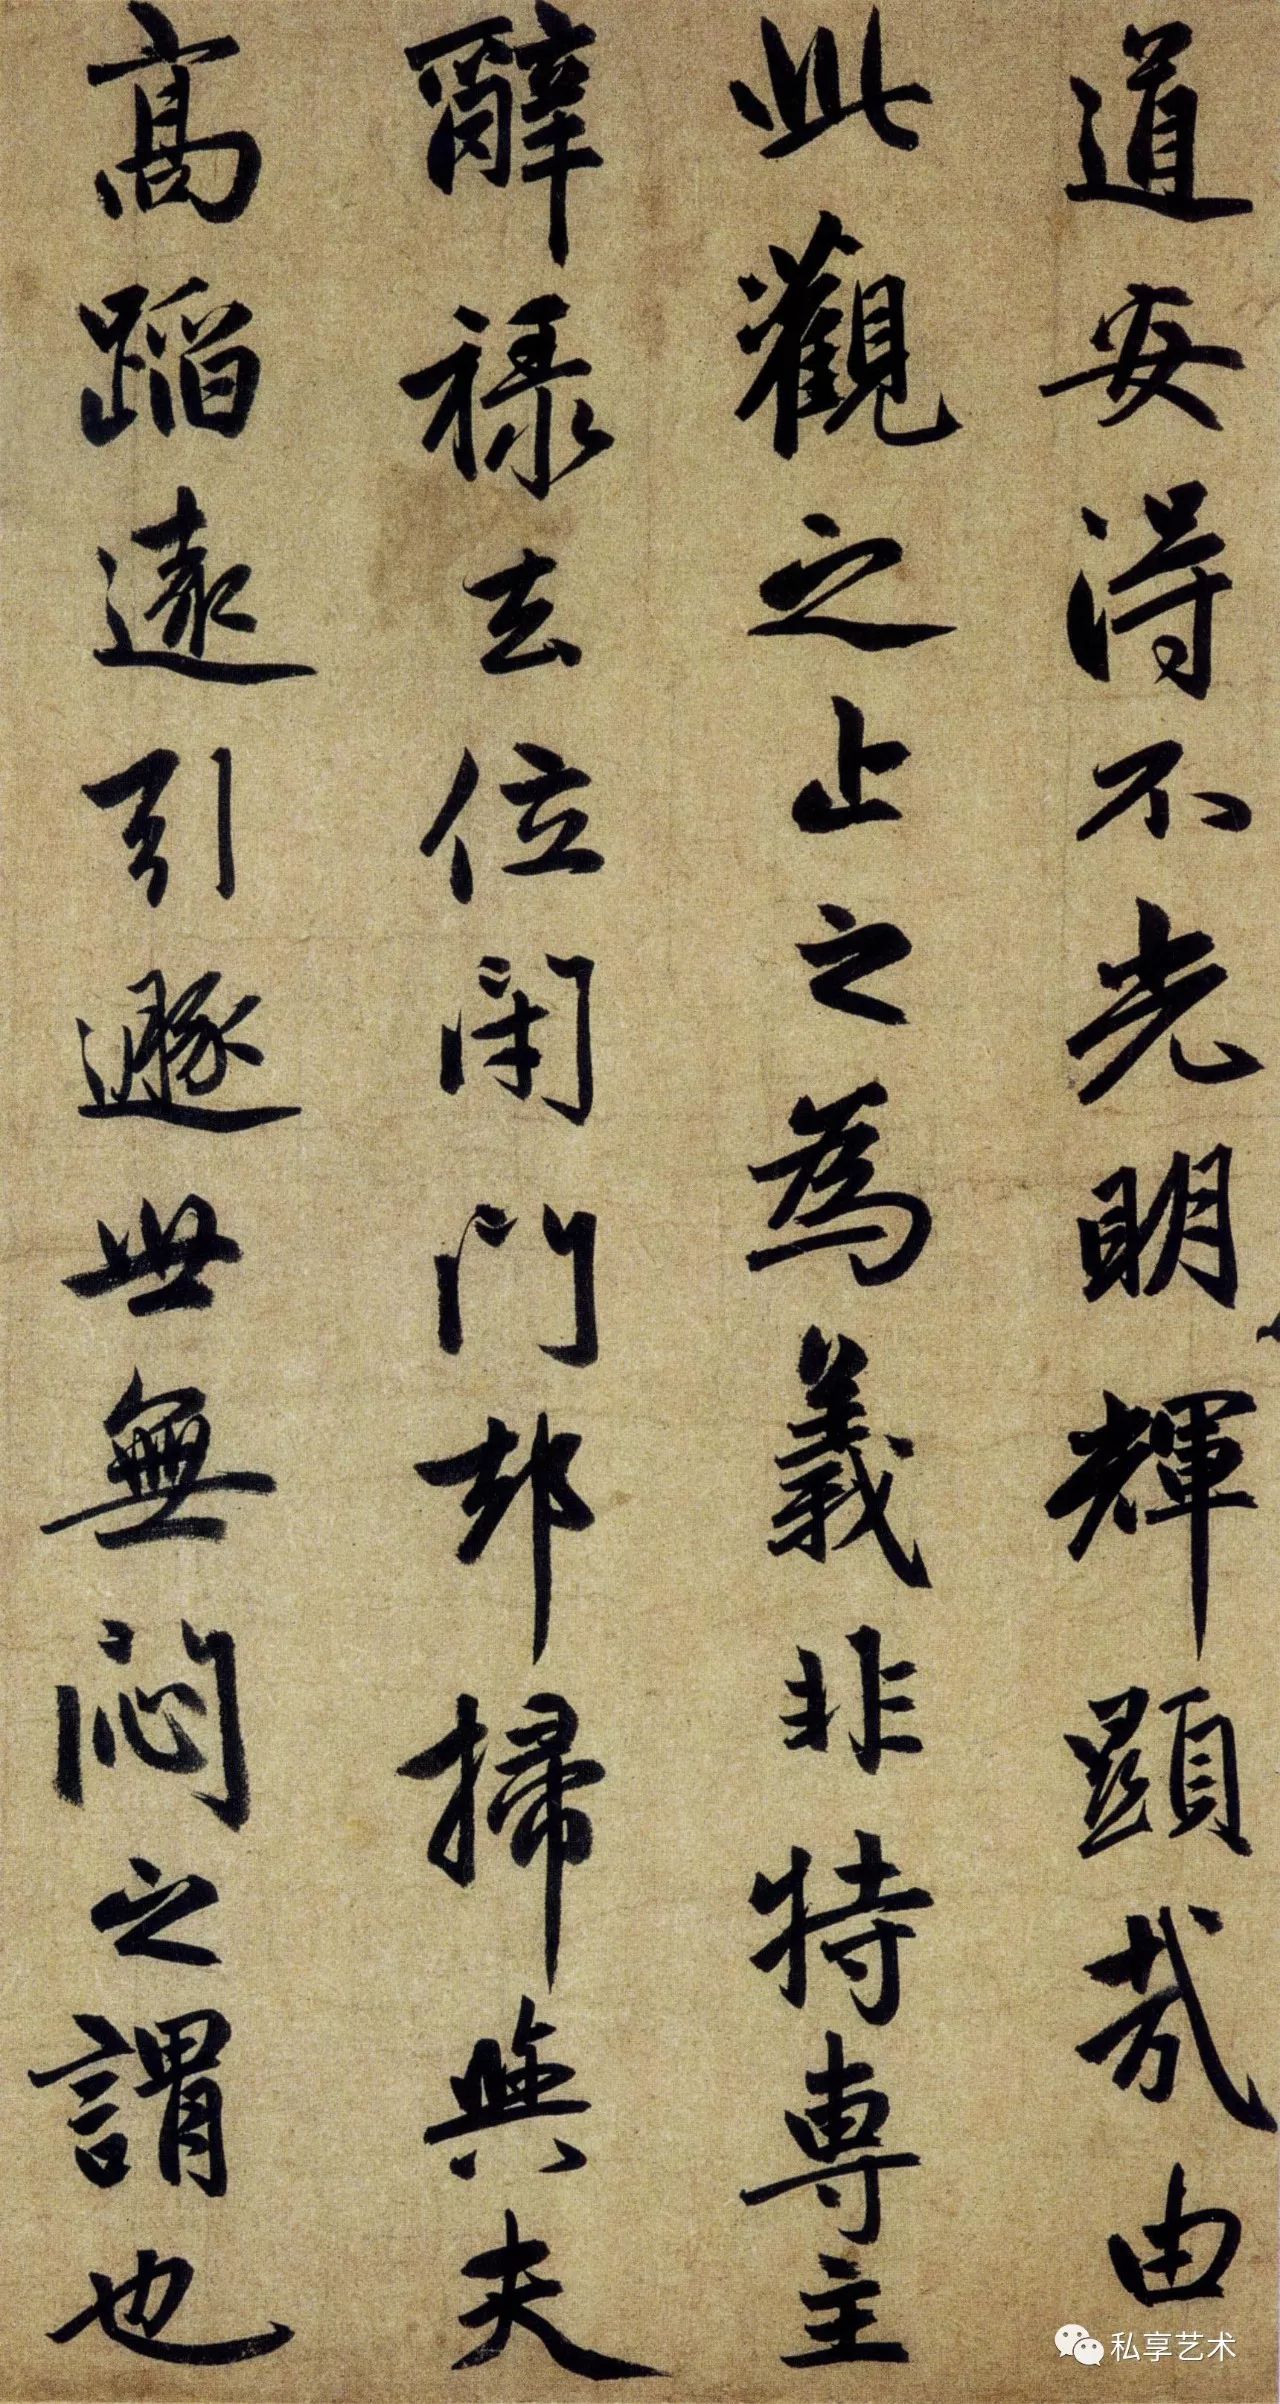 道安得不光明輝顯哉由
此觀之止之為義非特專主
辭祿去位閉門却掃與夫
高蹈遠引遯世無悶之謂也
私享艺术